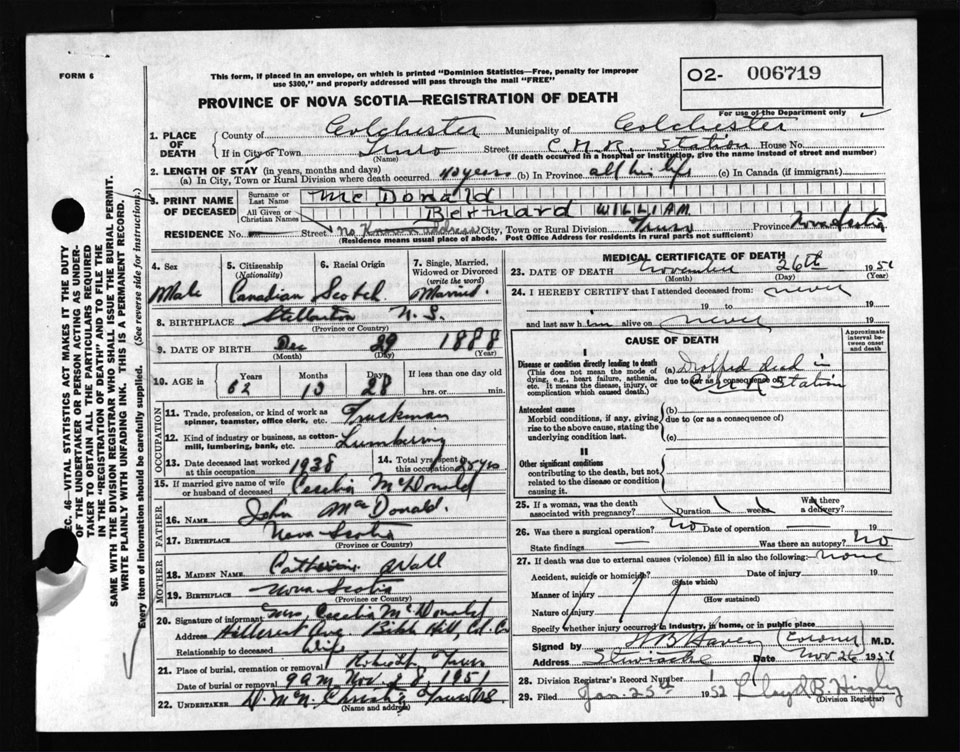 FORM 6
This form, if placed in an envelope, on which is printed "Dominion Statistics—Free, penalty for improper
use $300," and properly addressed will pass through the mail "FREE"
O2- 006719
For use of the Department only
PROVINCE OF NOVA SCOTIA—REGISTRATION OF DEATH
1. PLACE OF DEATH County of Colchester Municipality of Colchester
If in City or Town Truro (Name) Street C.N.R. Station House No.
(If death occurred in a hospital or institution, give the name instead of street and number)
2. LENGTH OF STAY (in years, months and days)
(a) In City, Town or Rural Division where death occurred 40 years (b) In Province all his life (c) In Canada (if immigrant)
3. PRINT NAME OF DECEASED Surname or Last Name McDonald
All Given or Christian Names Bernard WILLIAM
RESIDENCE No. Street No Known address City, Town or Rural Division Truro Province Nova Scotia
(Residence means usual place of abode. Post Office Address for residents in rural parts not sufficient)
4. Sex Male
5. Citizenship (Nationality) Canadian
6. Racial Origin Scotch
7. Single, Married, Widowed or Divorced (write the word) Married.
8. BIRTHPLACE Stellarton N.S.
(Province or Country)
9. DATE OF BIRTH Dec 29 1888
(Month) (Day) (Year)
10. AGE in Years Months Days If less than one day old
62 10 28 hrs. or min.
OCCUPATION
11. Trade, profession, or kind of work as spinner, teamster, office clerk, etc. Truckman
12. Kind of industry or business, as cotton-mill, lumbering, bank, etc. Lumbering
13. Date deceased last worked at this occupation 1938
14. Total yrs. spent in this occupation 25 yrs
15. If married give name of wife or husband of deceased Cecelia McDonald
FATHER
16. NAME John MacDonald.
17. BIRTHPLACE Nova Scotia
(Province or Country)
MOTHER
18. MAIDEN NAME Catherine Wall
19. BIRTHPLACE Nova Scotia
(Province or Country)
20. Signature of informant Mrs. Cecelia McDonald
Address Hillcrest Ave. Bible Hill, Col. Co
Relationship to deceased Wife
21. Place of burial, cremation or removal Truro
Date of burial or removal 9 AM Nov. 28, 1951
22. UNDERTAKER Truro N.S.
(Name and address)
MEDICAL CERTIFICATE OF DEATH
23. DATE OF DEATH November 26th 1951
(Month) (Day) (Year)
24. I HEREBY CERTIFY that I attended deceased from: never
19 to 19
and last saw him alive on never 19
CAUSE OF DEATH
Approximate interval between onset and death
I
Disease or condition directly leading to death
(This does not mean the mode of dying, e.g., heart failure, asthenia, etc. It means the disease, injury, or complication which caused death.)
(a) Dropped dead in
due to (or as a consequence of) C N R Station
Antecedent causes
Morbid conditions, if any, giving rise to the above cause, stating the underlying condition last.
(b)
due to (or as a consequence of)
(c)
II
Other significant conditions
contributing to the death, but not related to the disease or condition causing it.
25. If a woman, was the death associated with pregnancy? Duration weeks Was there a delivery?
26. Was there a surgical operation? No Date of operation 19
State findings Was there an autopsy? No
27. If death was due to external causes (violence) fill in also the following: none
Accident, suicide or homicide? (State which) Date of injury 19
Manner of injury (How sustained)
Nature of injury
Specify whether injury occurred in industry, in home, or in public place
Signed by (Coroner) M.D.
Address Stewiacke Date Nov 26 1951
28. Division Registrar's Record Number
29. Filed Jan. 25th 1952 Lloyd B.
(Division Registrar)
SEC. 46—VITAL STATISTICS ACT MAKES IT THE DUTY
OF THE UNDERTAKER OR PERSON ACTING AS UNDER-
TAKER TO OBTAIN ALL THE PARTICULARS REQUIRED
IN THE "REGISTRATION OF DEATH" AND TO FILE THE
SAME WITH THE DIVISION REGISTRAR WHO SHALL ISSUE THE BURIAL PERMIT.
WRITE PLAINLY WITH UNFADING INK. THIS IS A PERMANENT RECORD.
Every item of information should be carefully supplied. (See reverse side for instructions.)